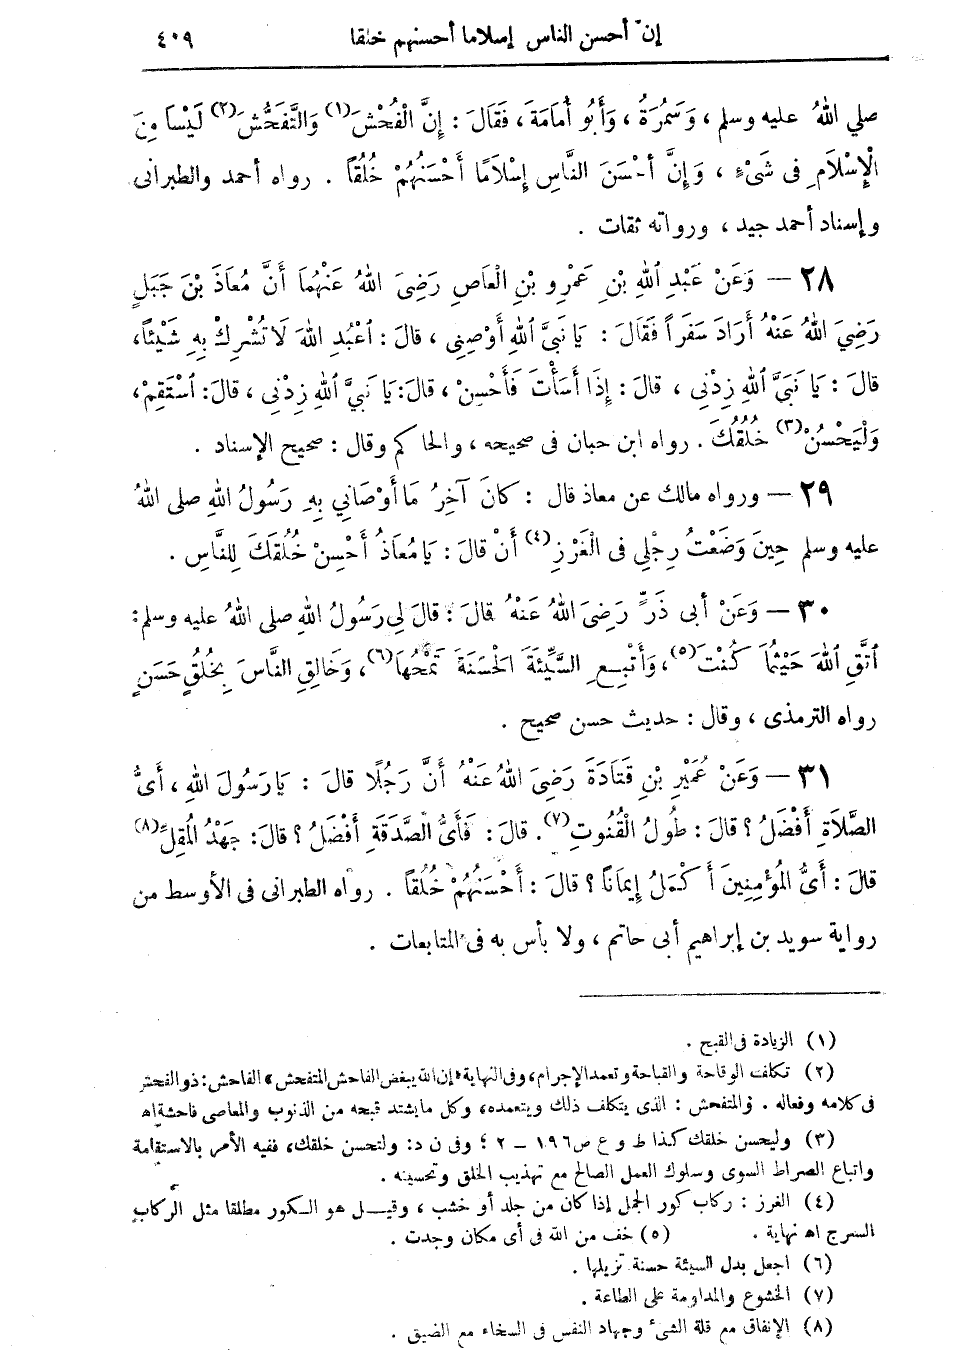 إنّ أحسن الناس إسلاما أحسنهم خلقا ٤٠٩
صلي اللهُ عليه وسلم ، وَسَمُرَةُ ، وَأَبُو أُمَامَةَ ، فَقَالَ : إِنَّ الْفُحْشَ(١) وَالتَّفَحُّشَ(٢) لَيْسَا مِنَ
الْإِسْلَامِ فى شَىْءٍ ، وَإِنَّ أَحْسَنَ النَّاسِ إِسْلَامًا أَحْسَنُهُمْ خُلُقاً . رواه أحمد والطبرانى
وإسناد أحمد جيد ، ورواته ثقات .
٢٨ — وَعَنْ عَبْدِ اللهِ بْنِ عَمْرِو بْنِ الْعَاصِ رَضِىَ اللهُ عَنْهُمَا أَنَّ مُعَاذَ بْنَ جَبَلٍ
رَضِيَ اللهُ عَنْهُ أَرَادَ سَفَراً فَقَالَ : يَا نَبِىَّ اللهِ أَوْصِنِى ، قالَ : اُعْبُدِ اللهَ لَا تُشْرِكْ بِهِ شَيْئاً ،
قالَ : يَا نَبِىَّ اللهِ زِدْنِى ، قالَ : إِذَا أَسَأْتَ فَأَحْسِنْ ، قالَ : يَا نَبِىَّ اللهِ زِدْنِى ، قالَ : اُسْتَقِمْ ،
وَلْيَحْسُنْ(٣) خُلُقُكَ . رواه ابن حبان فى صحيحه ، والحاكم وقال : صحيح الإسناد .
٢٩ — ورواه مالك عن معاذ قال : كانَ آخِرُ مَا أَوْصَانِي بِهِ رَسُولُ اللهِ صلى اللهُ
عليه وسلم حِينَ وَضَعْتُ رِجْلِى فى الْغَرْزِ(٤) أَنْ قالَ : يَا مُعَاذُ أَحْسِنْ خُلُقَكَ لِلنَّاسِ .
٣٠ — وَعَنْ أَبى ذَرٍّ رَضِىَ اللهُ عَنْهُ قالَ : قالَ لِي رَسُولُ اللهِ صلى اللهُ عليه وسلم :
اُتَّقِ اللهَ حَيْثُمَا كُنْتَ(٥) ، وَأَتْبِعِ السَّيِّئَةَ الْحَسَنَةَ تَمْحُهَا(٦) ، وَخَالِقِ النَّاسَ بِخُلُقٍ حَسَنٍ
رواه الترمذى ، وقال : حديث حسن صحيح .
٣١ — وَعَنْ عُمَيْرِ بْنِ قَتَادَةَ رَضِىَ اللهُ عَنْهُ أَنَّ رَجُلًا قالَ : يَا رَسُولَ اللهِ ، أَىُّ
الصَّلَاةِ أَفْضَلُ ؟ قالَ : طُولُ الْقُنُوتِ(٧) . قالَ : فَأَىُّ الصَّدَقَةِ أَفْضَلُ ؟ قالَ : جَهْدُ الْمُقِلِّ(٨)
قالَ : أَىُّ الْمُؤْمِنِينَ أَكْمَلُ إِيمَاناً ؟ قالَ : أَحْسَنُهُمْ خُلُقاً . رواه الطبرانى فى الأوسط من
رواية سويد بن إبراهيم أبى حاتم ، ولا بأس به فى المتابعات .
(١) الزيادة فى القبح .
(٢) تكلف الوقاحة والقباحة وتعمد الإجرام، وفى النهاية «إن الله يبغض الفاحش المتفحش» الفاحش : ذو الفحش
فى كلامه وفعاله . والمتفحش : الذى يتكلف ذلك ويتعمده، وكل ما يشتد قبحه من الذنوب والمعاصى فاحشة اه
(٣) وليحسن خلقك كذا ط و ع ص ١٩٦ — ٢ ؛ وفى ن د : ولتحسن خلقك، ففيه الأمر بالاستقامة
واتباع الصراط السوى وسلوك العمل الصالح مع تهذيب الخلق وتحسينه .
(٤) الغرز : ركاب كور الجمل إذا كان من جلد أو خشب ، وقيل هو الكور مطلقا مثل الركاب
السرج اه نهاية . (٥) خف من الله فى أى مكان وجدت .
(٦) اجعل بدل السيئة حسنة تزيلها .
(٧) الخشوع والمداومة على الطاعة .
(٨) الإنفاق مع قلة الشىء وجهاد النفس فى السخاء مع الضيق .